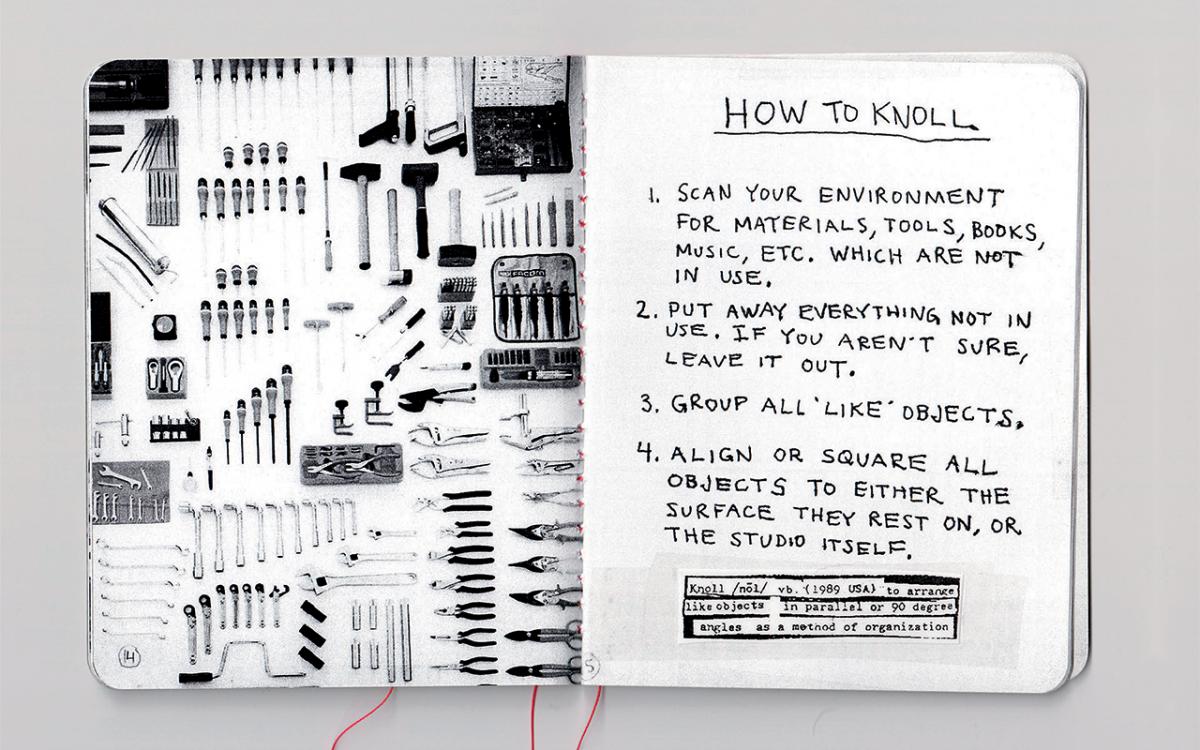 facom
14
HOW TO KNOLL.
1. SCAN YOUR ENVIRONMENT
FOR MATERIALS, TOOLS, BOOKS,
MUSIC, ETC. WHICH ARE NOT
IN USE.
2. PUT AWAY EVERYTHING NOT IN
USE. IF YOU AREN'T SURE,
LEAVE IT OUT.
3. GROUP ALL 'LIKE' OBJECTS.
4. ALIGN OR SQUARE ALL
OBJECTS TO EITHER THE
SURFACE THEY REST ON, OR
THE STUDIO ITSELF.
Knoll /nōl/ vb. (1989 USA) to arrange
like objects in parallel or 90 degree
angles as a method of organization